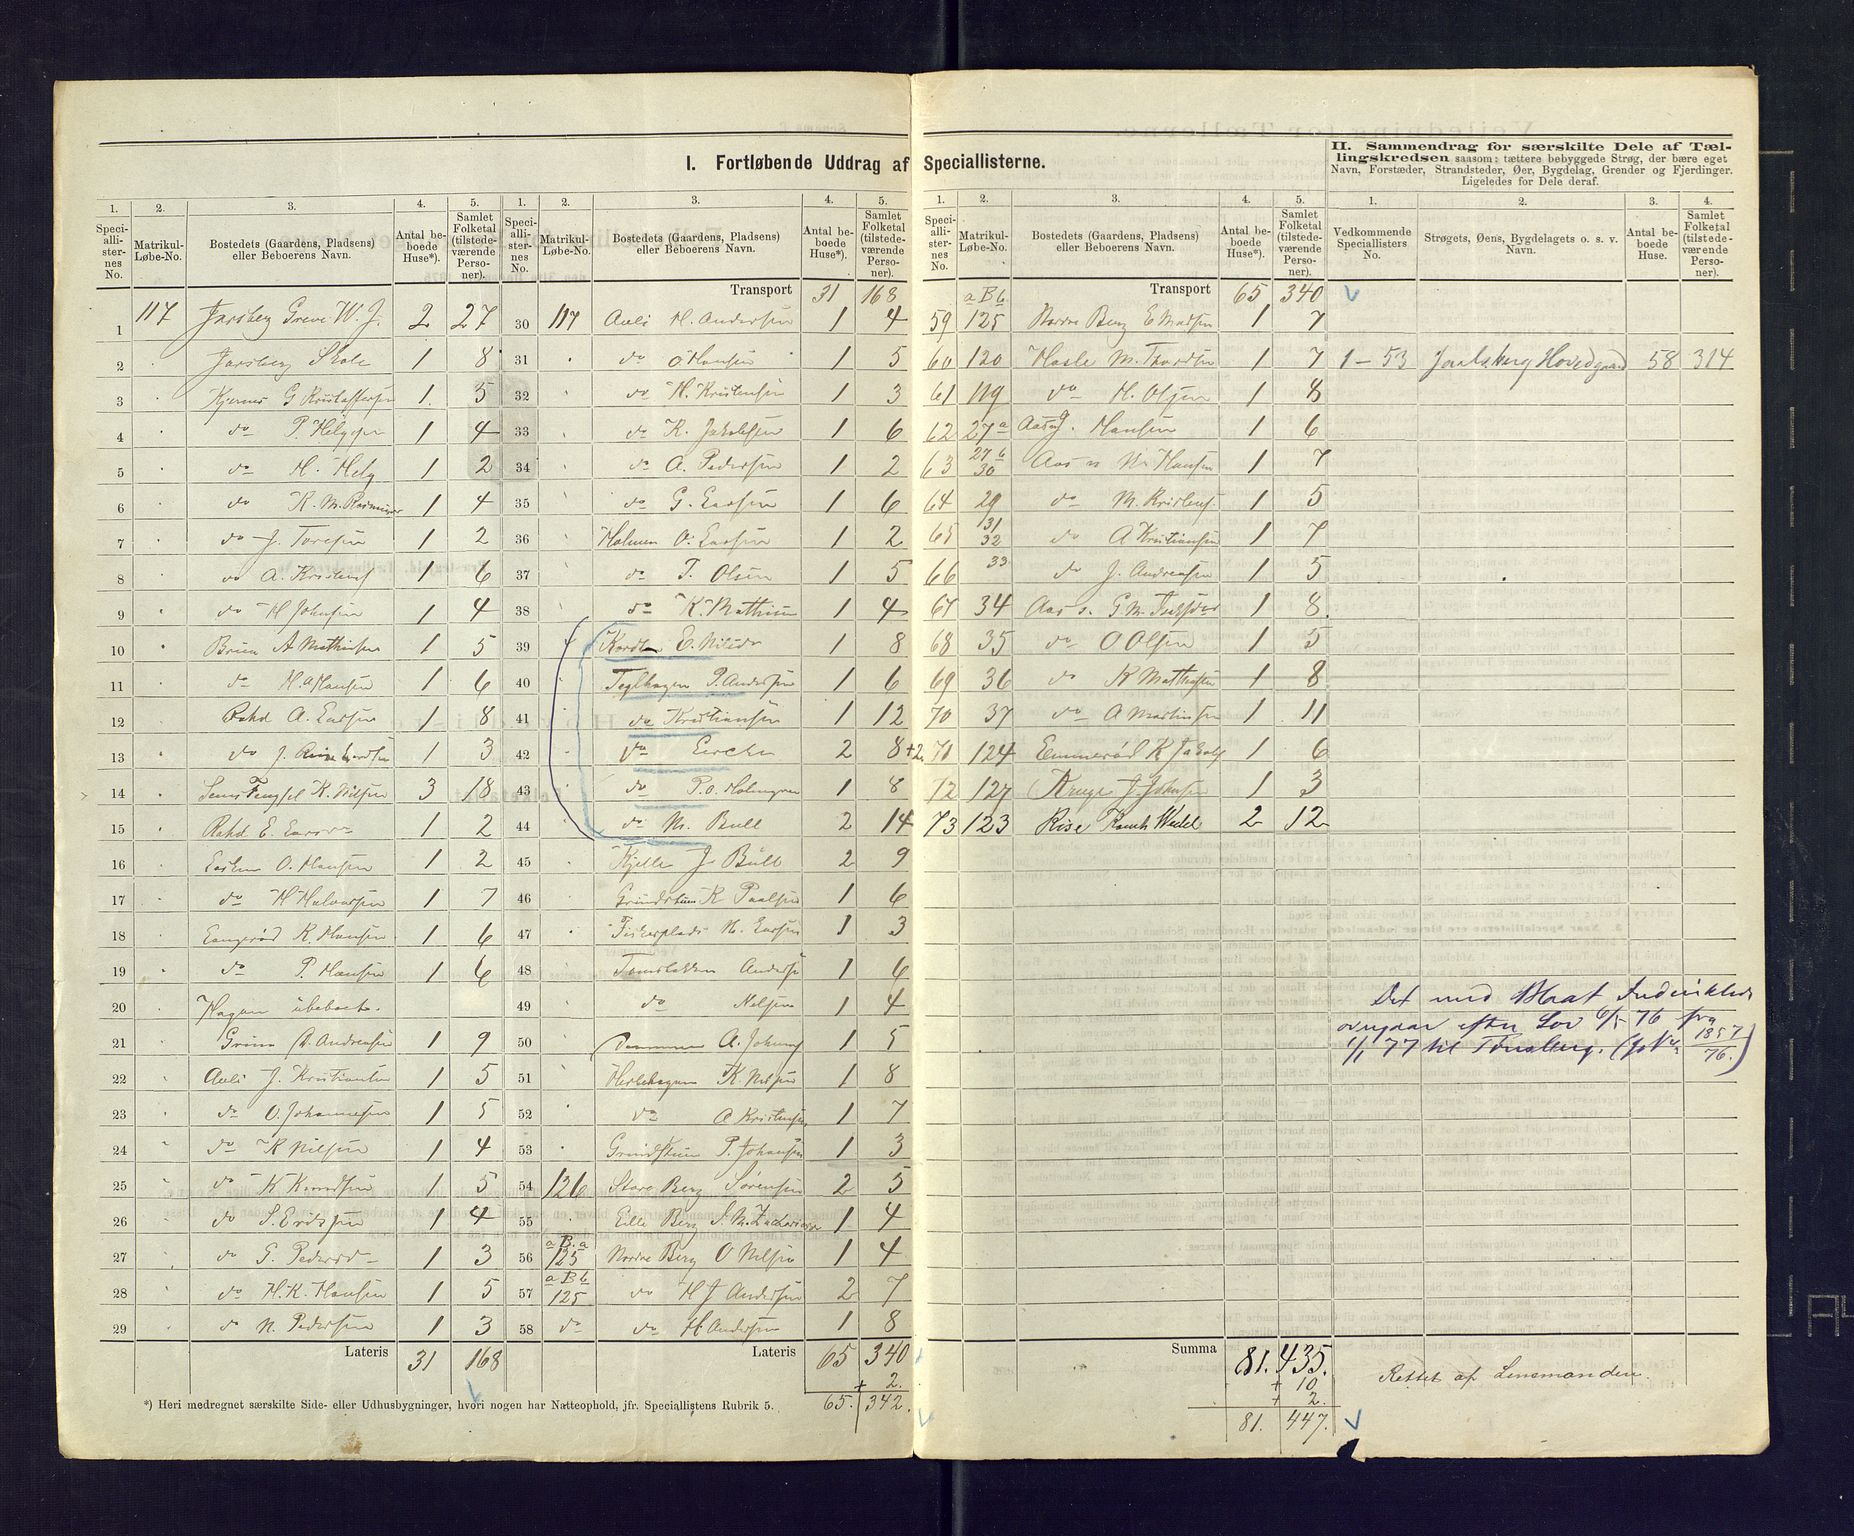 I. Fortløbende Uddrag af Speciallisterne.
II. Sammendrag for særskilte Dele af Tællingskredsen saasom: tættere bebyggede Strøg, der bære eget
Navn, Forstæder, Strandsteder, Øer, Bygdelag, Grender og Fjerdinger.
Ligeledes for Dele deraf.
1. 2. 3. 4. 5. 1. 2. 3. 4. 5.
Speciallisternes No. Matrikul-Løbe-No. Bostedets (Gaardens, Pladsens) eller Beboerens Navn. Antal beboede Huse*). Samlet Folketal (tilstedeværende Personer).
Speciallisternes No. Matrikul-Løbe-No. Bostedets (Gaardens, Pladsens) eller Beboerens Navn. Antal beboede Huse*). Samlet Folketal (tilstedeværende Personer).
1 117 Jarlsberg Greve W. J. 2 27
2 Jarlsberg Skole 1 8
3 Kjernes G Kristoffersen 1 5
4 do P Helgesen 1 4
5 do H. Helg 1 2
6 do K. M. Rasmussen 1 4
7 do J. Toresen 1 2
8 do A. Kristens 1 6
9 do H Johnsen 1 4
10 A Mathisen 1 5
11 do Hansen 1 6
12 A. Larsen 1 8
13 do J. 1 3
14 Sems Fengsel K. Nilsen 3 18
15 E. 1 2
16 O. Hansen 1 2
17 do H Halvorsen 1 7
18 K. Hansen 1 6
19 do P. Hansen 1 6
20 Hagen ubeboet.
21 Andreasen 1 9
22 Auli J. Kristiansen 1 5
23 do O. Johannesen 1 5
24 do K Nilsen 1 4
25 do K Knudsen 1 5
26 do S. Eriksen 1 4
27 do G. 1 3
28 do H. K. Hansen 1 5
29 do N. Pedersen 1 3
Lateris 31 168
*) Heri medregnet særskilte Side- eller Udhusbygninger, hvori nogen har Natteophold, jfr. Speciallistens Rubrik 5.
Transport 31 168
30 117 Auli H. Andersen 1 4
31 do O Hansen 1 5
32 do H. Kristensen 1 3
33 do K. Jakobsen 1 6
34 do A. Pedersen 1 2
35 do G. Larsen 1 6
36 Holmen O. Larsen 1 2
37 do T. Olsen 1 5
38 do K. Mathisen 1 4
39 E. 1 8
40 Teglhagen P. Andersen 1 6
41 do Kristiansen 1 12
42 do 2 8 +2
43 do P. O. Holmgren 1 8
44 do M. Bull 2 14
45 Kjelle J Bull 2 9
46 K Paalsen 1 6
47 Fiskerplads N. Larsen 1 3
48 Anders 1 6
49 do Nilsen 1 4
50 A. Johans 1 5
51 K. Nilsen 1 8
52 do A Kristensen 1 7
53 P. Johansen 1 3
54 126 Store Berg Sørensen 2 5
55 Lille Berg S. M. Zachariasen 1 4
56 a B. a 125 Nordre Berg O Nilsen 1 4
57 a B b 125 do H J Andersen 2 7
58 do do H Andersen 1 8
Lateris 65 340
+ 2.
65. 342.
1. 2. 3. 4. 5. 1. 2. 3. 4.
Speciallisternes No. Matrikul-Løbe-No. Bostedets (Gaardens, Pladsens) eller Beboerens Navn. Antal beboede Huse*). Samlet Folketal (tilstedeværende Personer).
Vedkommende Speciallisters No. Strøgets, Øens, Bygdelagets o. s. v. Navn. Antal beboede Huse. Samlet Folketal (tilstedeværende Personer).
Transport 65 340
59 a B b 125 Nordre Berg E Madsen 1 7
60 120 Hasle M. Thordsen 1 7
61 119 do H. Olsen 1 8
62 27 a Aas J. Hansen 1 6
63 27 b 30 Aas M. Hansen 1 7
64 29 do M. Kristens 1 5
65 31 32 do A Kristiansen 1 7
66 33 do J. Andreasen 1 5
67 34 Aas G M. 1 8
68 35 do O Olsen 1 5
69 36 do K Mathisen 1 8
70 37 do A Martinsen 1 11
71 124 Emmerød K Jakobs 1 6
72 127 J. Johnsen 1 3
73 123 Rise Wedel 2 12
Summa 81. 435.
+ 10
+ 2.
81. 447.
1 – 53 Jarlsberg Hovedgaard 58 314
Det med Blaat Indcirklede
overgaar efter Lov 6/5 76 fra
1/1 77 til Tønsberg. (jo No 1857/76.)
Rettet af Lensmanden.